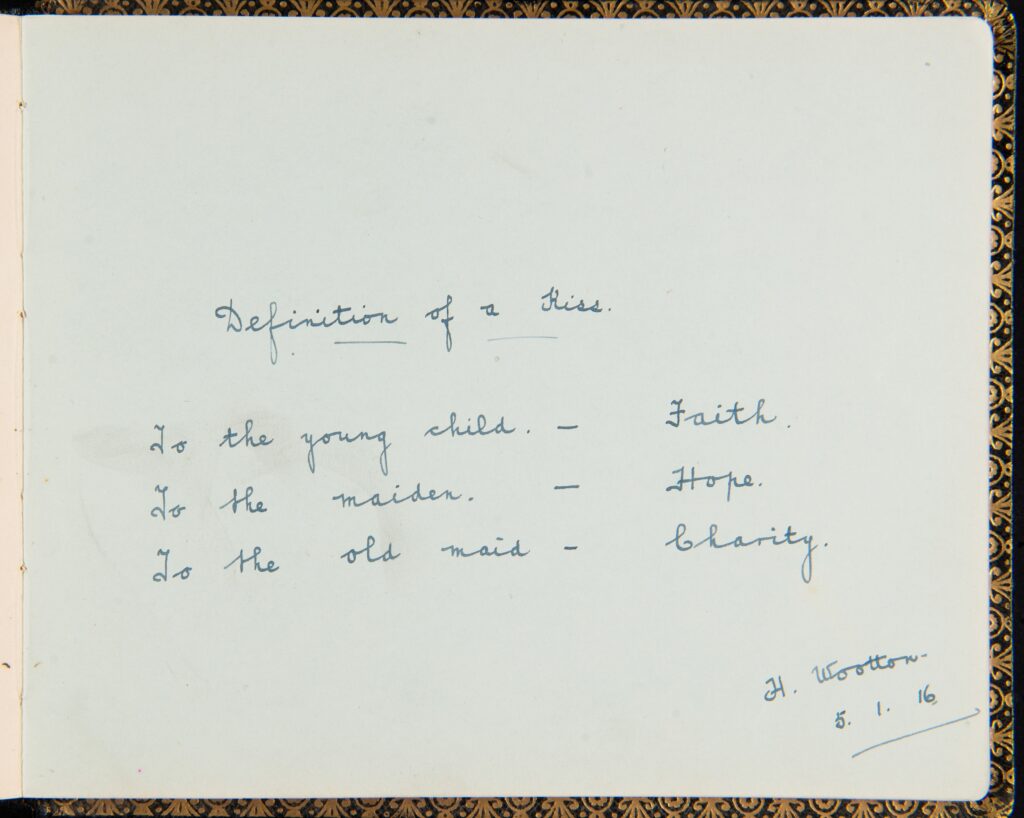 Definition of a Kiss.
To the young child. – Faith.
To the maiden. – Hope.
To the old maid – Charity.
H. Wootton-
5. 1. 16